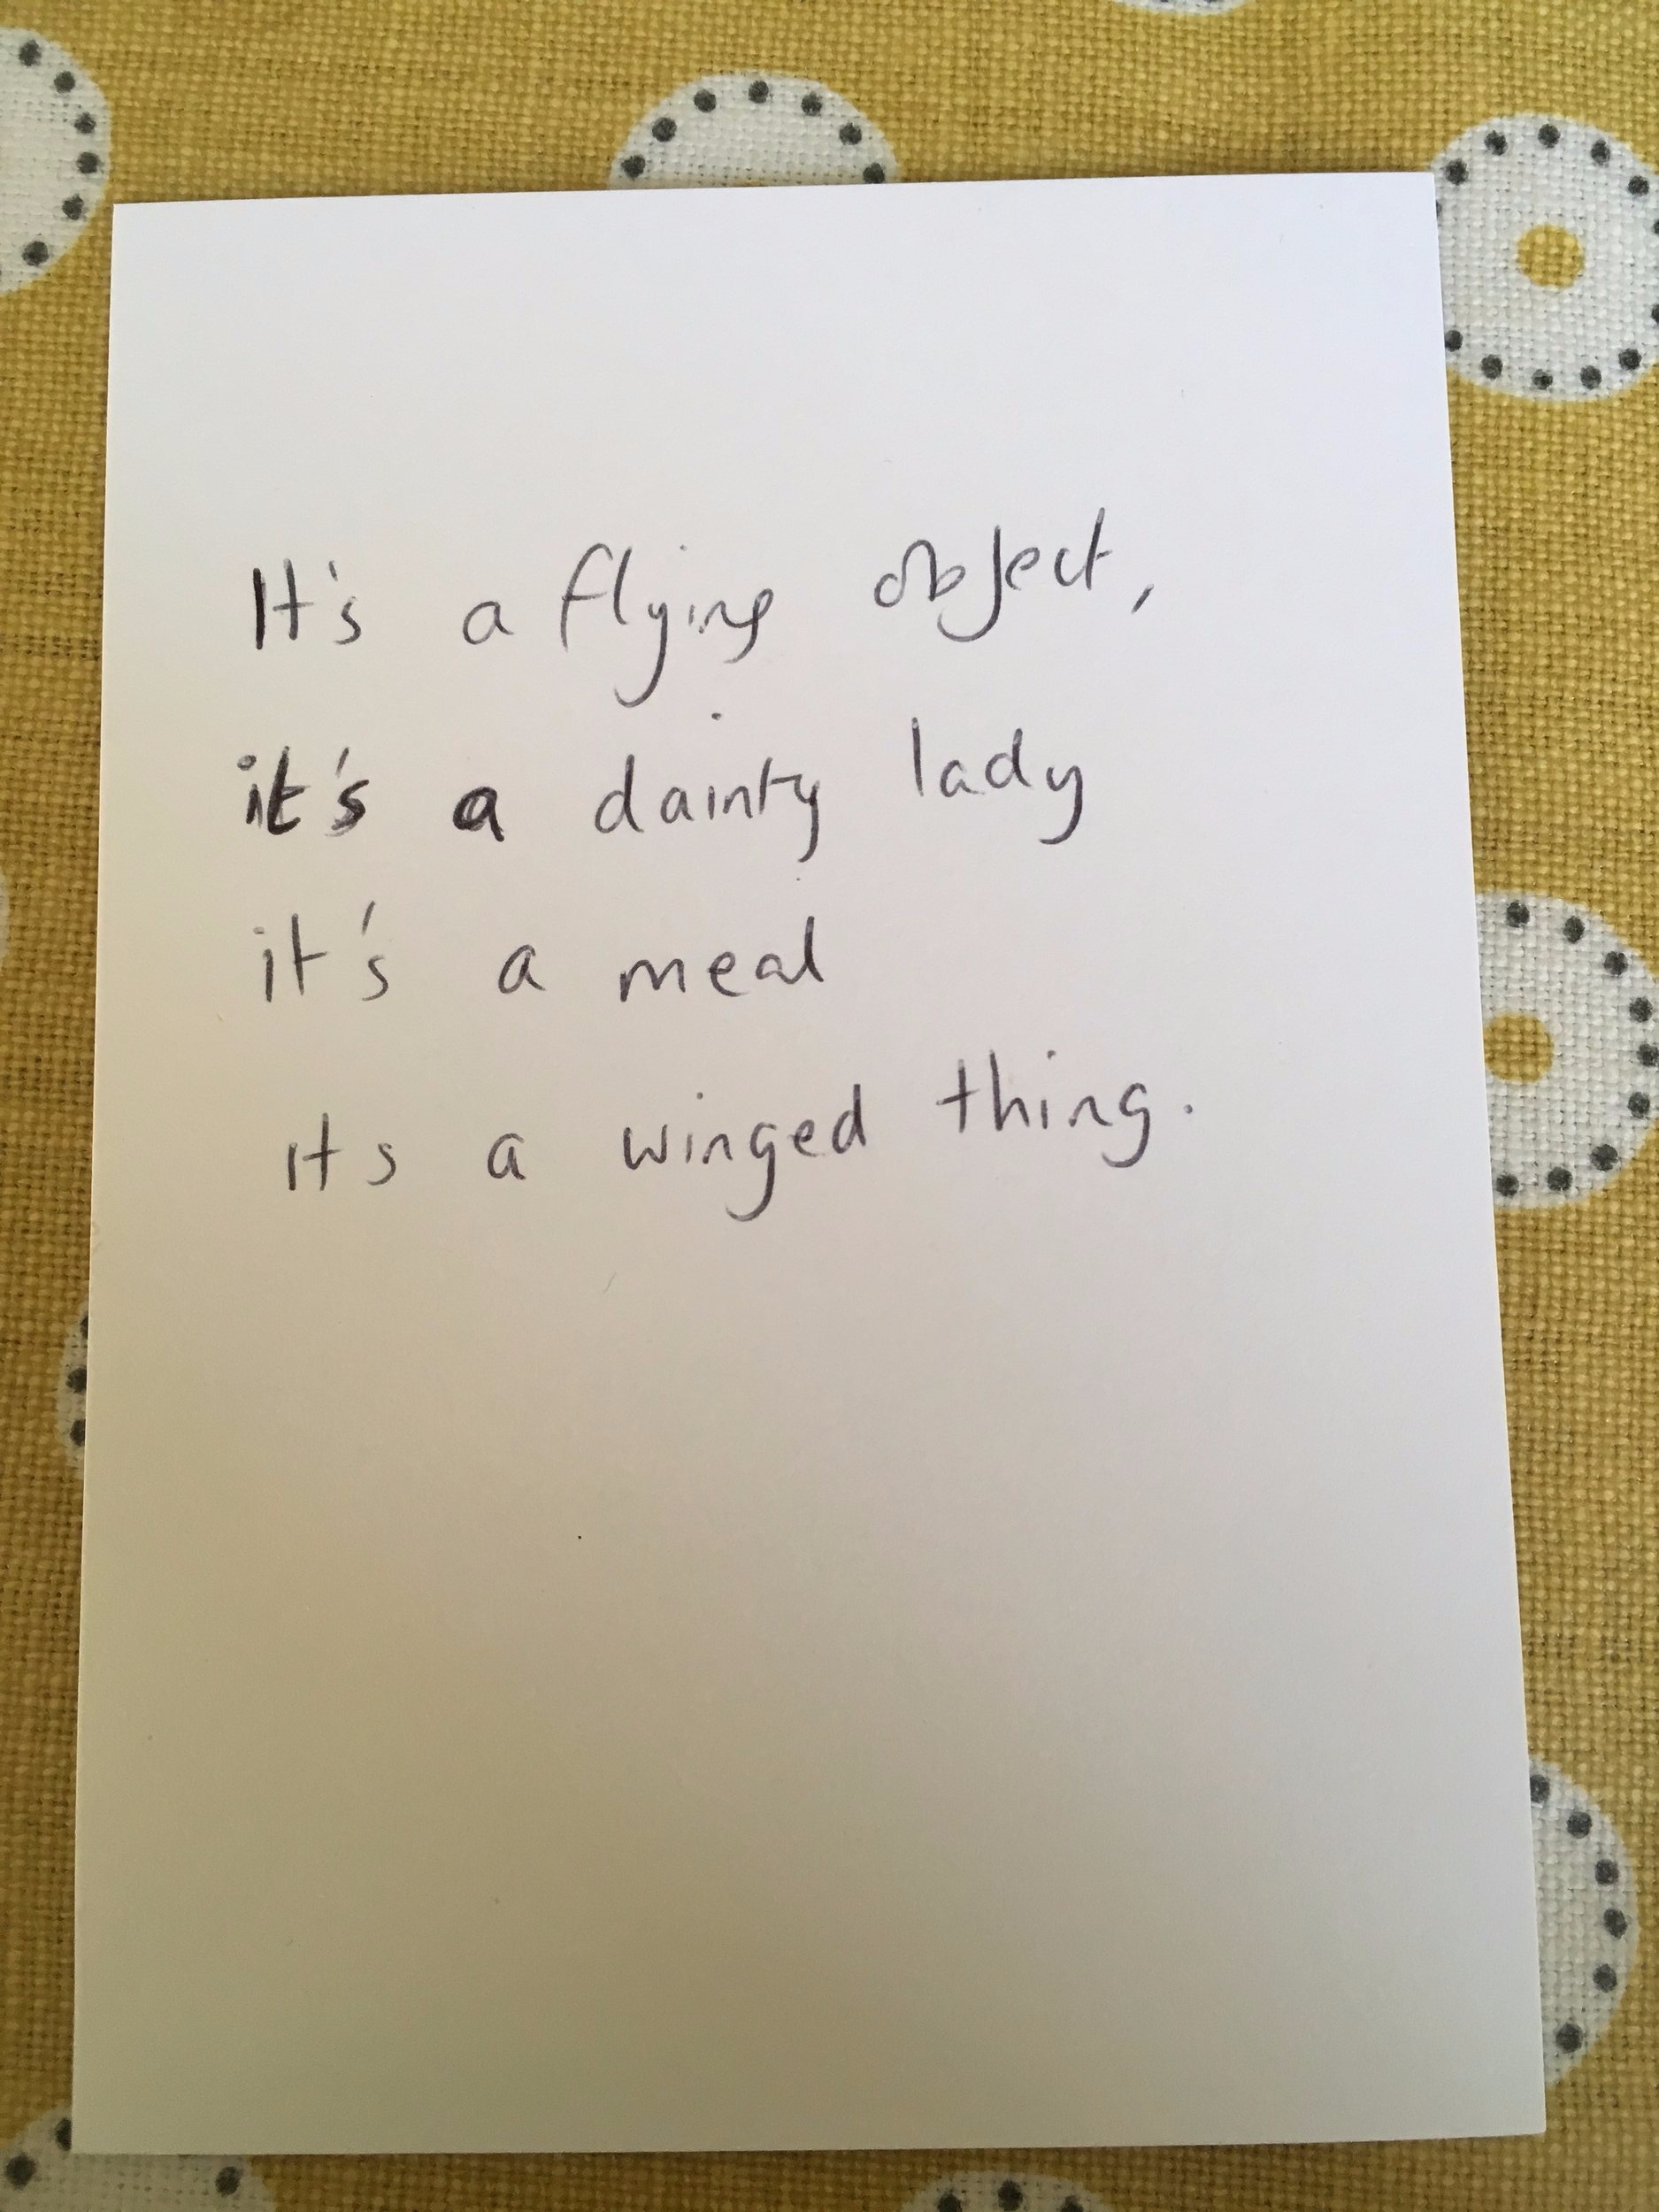 It's a flying object,
it's a dainty lady
it's a meal
its a winged thing.